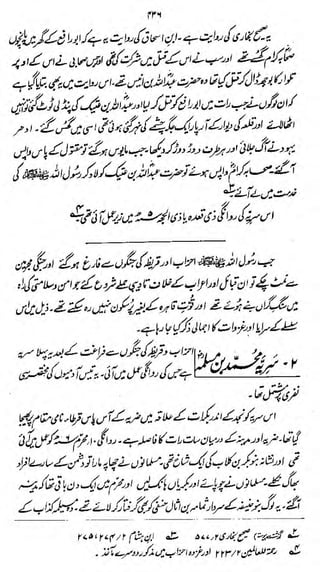 ۴۳۶
یہ صحیح بخاری کی روایت ہے۔ ابن اسحاق کی روایت یہ ہے کہ ابو رافع کے گھر میں پانچوں
صحابہ کرام گھسے تھے اور سب نے اس کے قتل میں شرکت کی تھی اور جس صحابی نے اس کے اوپر
تلوار کا بوجھ ڈال کر قتل کیا تھا وہ حضرت عبداللہ بن انیس تھے۔ اس روایت میں یہ بھی بتایا گیا ہے
کہ ان لوگوں نے جب رات میں ابو رافع کو قتل کر لیا اور عبداللہ بن عتیک کی پنڈلی ٹوٹ گئی تو انہیں
اٹھا لائے اور قلعہ کی دیوار کے آر پار ایک جگہ چشمے کی نہر گئی ہوئی تھی اسی میں گھس گئے۔ ادھر
یہود نے آگ جلائی اور ہر طرف دوڑ دوڑ کر دیکھا۔ جب مایوس ہو گئے تو مقتول کے پاس واپس
آگئے۔ صحابہ کرام واپس ہوئے تو حضرت عبداللہ بن عتیک کو لاد کر رسول اللہ ﷺ کی
خدمت میں لے آئے۔ ۳
اس سریہ کی روانگی ذی قعدہ یا ذی الحجہ ۵ھ میں زیر عمل آئی تھی ۴
جب رسول اللہ ﷺ احزاب اور قریظہ کی جنگوں سے فارغ ہو گئے اور جنگی مجرمین
سے نمٹ چکے تو ان قبائل اور اعراب کے خلاف تادیبی حملے شروع کئے جو امن و سلامتی کی راہ
میں سنگ گراں بنے ہوئے تھے اور قوت قاہرہ کے بغیر پرسکون نہیں رہ سکتے تھے۔ ذیل میں اس
سلسلے کے سرایا اور غزوات کا اجمالی ذکر کیا جا رہا ہے۔
۲۔ سریہ محمد بن مسلمہ
احزاب و قریظہ کی جنگوں سے فراغت کے بعد یہ پہلا سریہ
ہے جس کی روانگی عمل میں آئی۔ یہ تیس آدمیوں کی مختصر سی
نفری پر مشتمل تھا۔
اس سریہ کو نجد کے اندر بکرات کے علاقہ میں ضریہ کے آس پاس قرطاء نامی مقام پر بھیجا
گیا تھا۔ ضریہ اور مدینہ کے درمیان سات رات کا فاصلہ ہے۔ روانگی ۱۰ محرم ۶ھ کو عمل میں آئی
تھی اور نشانہ بنو بکر بن کلاب کی ایک شاخ تھی۔ مسلمانوں نے چھاپہ مارا تو دشمن کے سارے افراد
بھاگ نکلے۔ مسلمانوں نے چوپائے اور بکریاں ہانک لیں اور محرم میں ایک دن باقی تھا کہ مدینہ
آگئے۔ یہ لوگ بنو حنیفہ کے سردار ثمامہ بن اثال حنفی کو بھی گرفتار کر لائے تھے۔ وہ مسیلمہ کذاب کے
۲ صحیح بخاری ۲/۵۷۷ ۳ ابن ہشام ۲/۲۷۴، ۲۷۵
۴ رحمۃ للعالمین ۲/۲۲۳ اور غزوہ احزاب میں مذکور دوسرے مآخذ۔